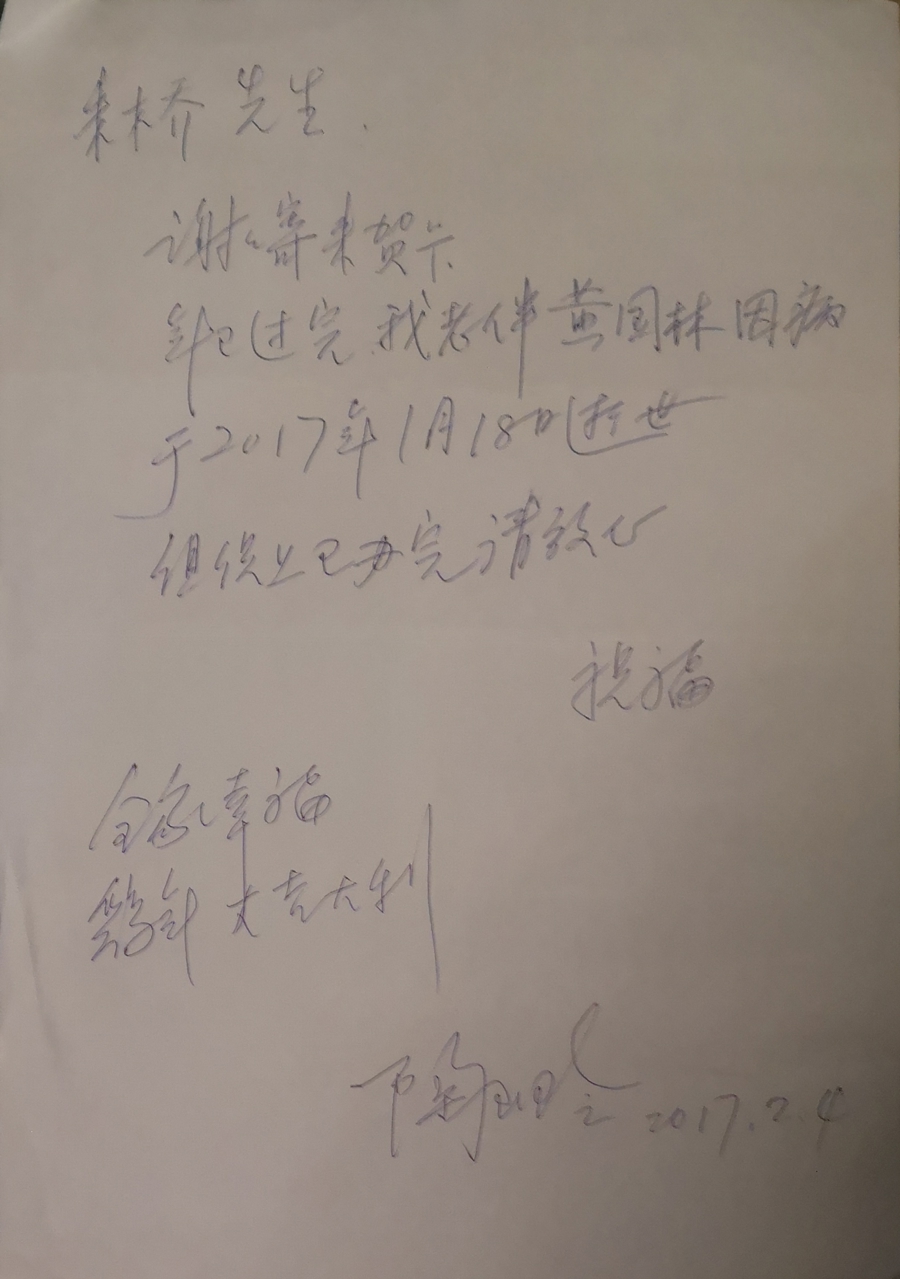 来桥先生.
谢谢寄来贺卡
年已过完.我老伴黄国林因病
于2017年1月18日逝世
组织上已办完请放心
祝福
全家幸福
鸡年大吉大利
陶 2017.2.4